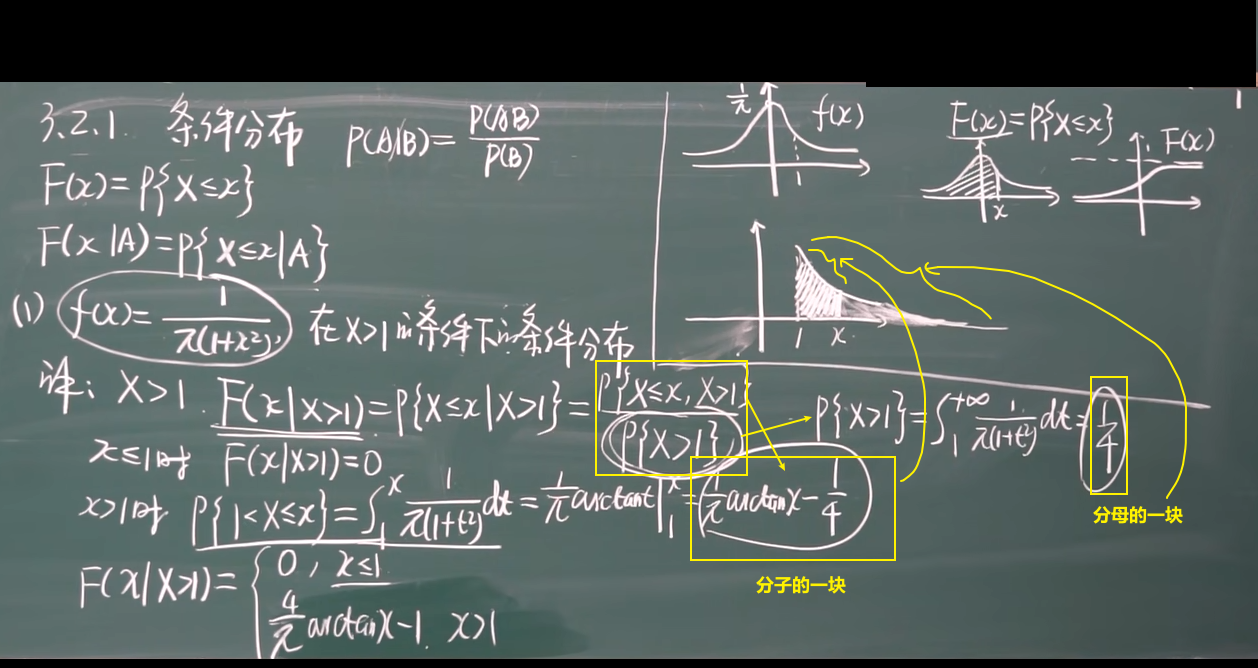 3.2.1. 条件分布 P(A|B)=P(AB)/P(B)
F(x)=P{X≤x}
F(x|A)=P{X≤x|A}
(1) f(x)=1/π(1+x²), 在X>1的条件下的条件分布
译: X>1. F(x|X>1)=P{X≤x|X>1}=P{X≤x, X>1}/P{X>1}
P{X>1}=∫₁^{+∞} 1/π(1+t²) dt=1/4
x≤1时 F(x|X>1)=0
x>1时 P{1<X≤x}=∫₁^x 1/π(1+t²) dt=1/π arctant|₁^x=1/π arctanx-1/4
F(x|X>1)={0, x≤1
4/π arctanx-1. x>1
1/π f(x)
1
F(x)=P{X≤x}
x
1 F(x)
1 x
分母的一块
分子的一块